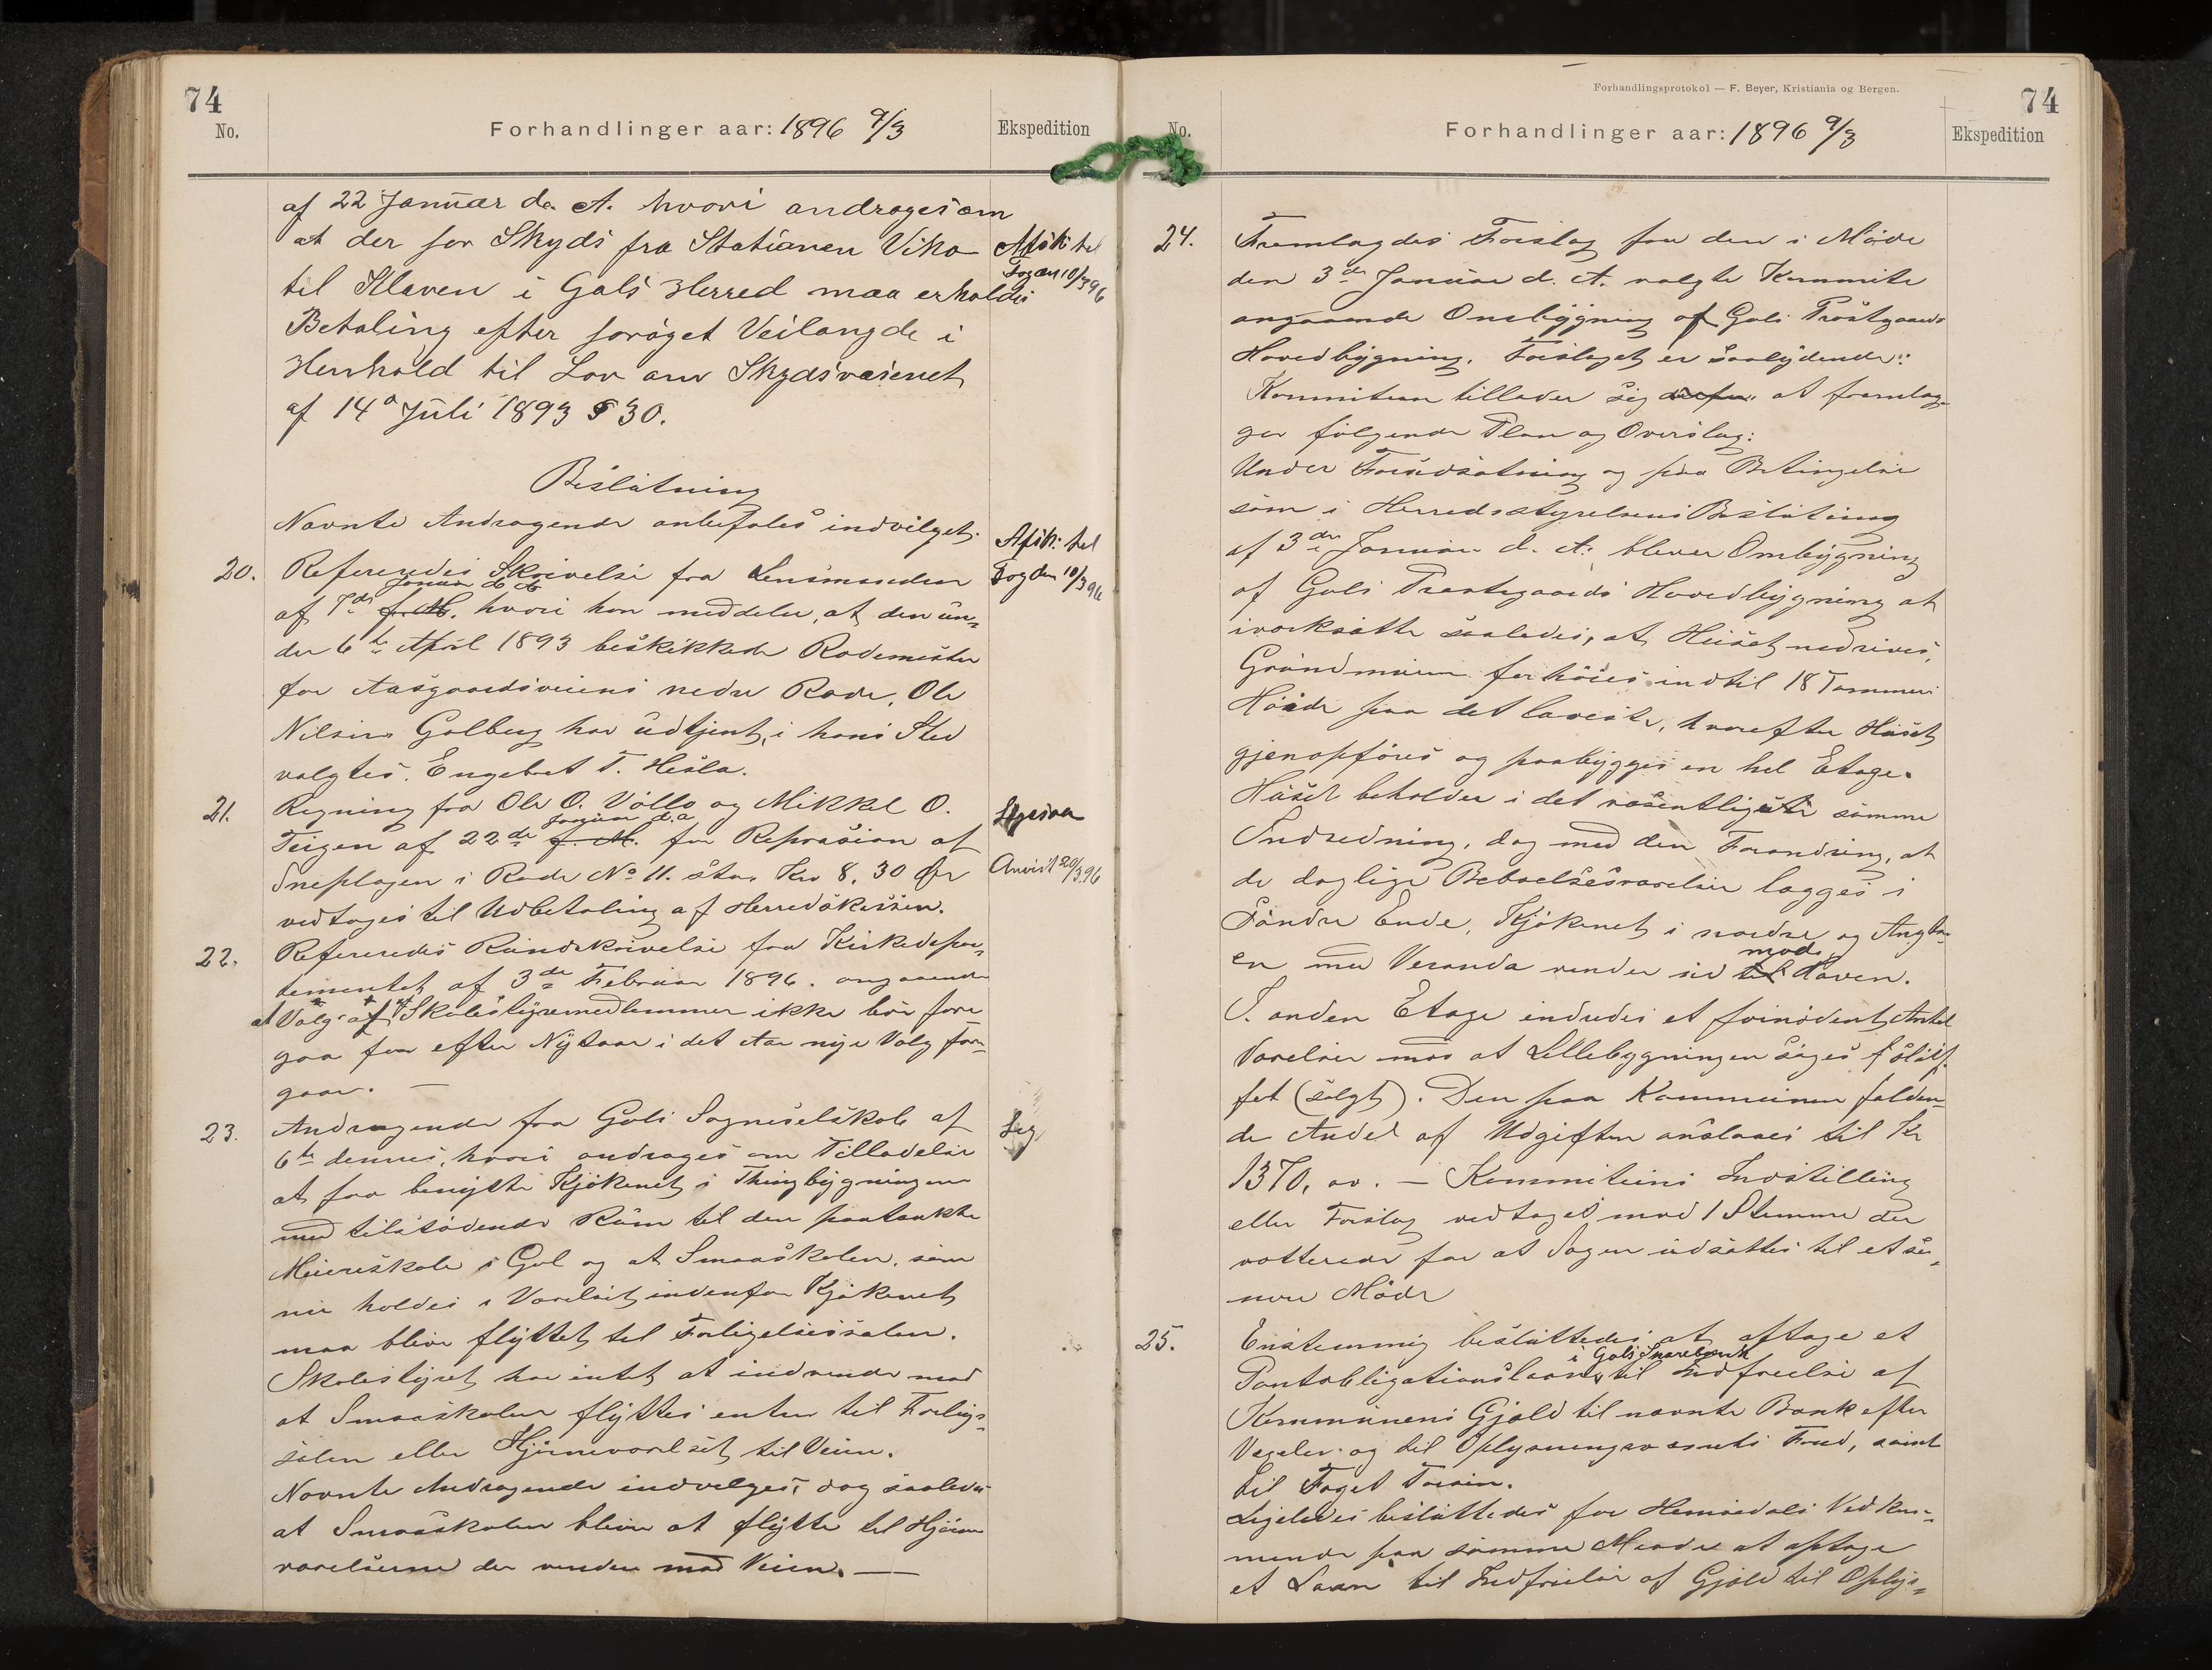 74
No.
Forhandlinger aar: 1896 9/3
Ekspedition
af 22 Januar d. A. hvori andrages om
at der for Skyds fra Stationen Viko
til Kleven i Gols Herred maa erholdes
Betaling efter forøget Veilængde i
Henhold til Lov om Skydsvæsenet
af 14de Juli 1893 § 30.
Afsk. til
Fogden 10/3 96
Beslutning
Nævnte Andragende anbefales indvilget.
20.
Refereredes Skrivelse fra Lensmanden
Januar d. A.
af 7de f. M. hvori han meddeler, at den un-
der 6te April 1893 beskikkede Rodemester
for Aasgaardsveiens nedre Rode, Ole
Nilsen Golberg har udtjent, i hans Sted
valgtes Engebret T. Hesla.
Afsk. til
Fogden 10/3 96
21.
Regning fra Ole O. Vøllo og Mikkel O.
Januar d. a
Teigen af 22de f. M. for Reprasion af
Sneplogen i Rode No 11. stor Kr 8,30 Øre
vedtages til Udbetaling af Herredskassen.
Anvist 20/3 96
22.
Refereredes Rundskrivelse fra Kirkedepar-
tementet af 3de Februar 1896. angaaende
at Valg af Skolestyremedlemmer ikke bør fore
gaa før efter Nytaar i det Aar nye Valg for-
gaar. —
23.
Andragende fra Gols Sogneselskab af
6te dennes, hvori andrages om Tilladelse
at faa benytte Kjøkenet i Thingbygningen
med tilstødende Rum til den paatænkte
Meieriskole i Gol og at Smaaskolen, som
nu holdes i Værelset indenfor Kjøkenet
maa blive flyttet til Forligelsessalen.
Skolestyret har intet at indvende mod
at Smaaskolen flyttes enten til Forligs-
salen eller Hjørneværelset til Veien.
Nævnte Andragende indvilges, dog saaledes
at Smaaskolen bliver at flytte til Hjørne
værelserne der vender mod Veien. —
Forhandlingsprotokol — F. Beyer, Kristiania og Bergen.
74
No.
Forhandlinger aar: 1896 9/3
Ekspedition
24.
Fremlagdes Forslag fra den i Møde
den 3de Januar d. A. valgte Kommite
angaaende Ombygning af Gols Præstgaards
Hovedbygning. Forslaget er saalydende:
Kommiteen tillader sig at fremlæg-
ger følgende Plan og Overslag:
Under Forudsætning og paa Betingelse
som i Herredsstyrelsens Beslutning
af 3de Januar d. A. bliver Ombygning
af Gols Præstegaards Hovedbygning at
iværksætte saaledes, at Huset nedrives,
Grundmuren forhøies indtil 18 Tommers
Høide paa det laveste, hvorefter Huset
gjenopføres og paabygges en hel Etage.
Huset beholder i det væsentligste samme
Indredning, dog med den Forandring, at
de daglige Beboelsesværelser lægges i
Søndre Ende, Kjøkenet i nordre og Angan-
mod
en med Veranda vender sid til Haven.
I anden Etage indredes et fornødent Antal
Værelser mod at Lillebygningen søges sløif-
fet (solgt). Den paa Kommunen falden-
de Andel af Udgiften anslaaes til Kr
1370, 00. — Kommiteens Indstilling
eller Forslag vedtages mod 1 Stemme der
votterede for at Sagen udsættes til et se-
nere Møde
25.
Enstemmig besluttedes at optage et
i Gols Sparebank
Pantobligationslaan til Indfrielse af
Kommunens Gjæld til nævnte Bank efter
Vexeler og til Oplysningsvæsenets Fond, samt
til Foged Thesen.
Ligeledes besluttedes for Hemsedals Vedkom-
mende paa samme Maade at optage
et Laan til Indfrielse af Gjæld til Oplys-